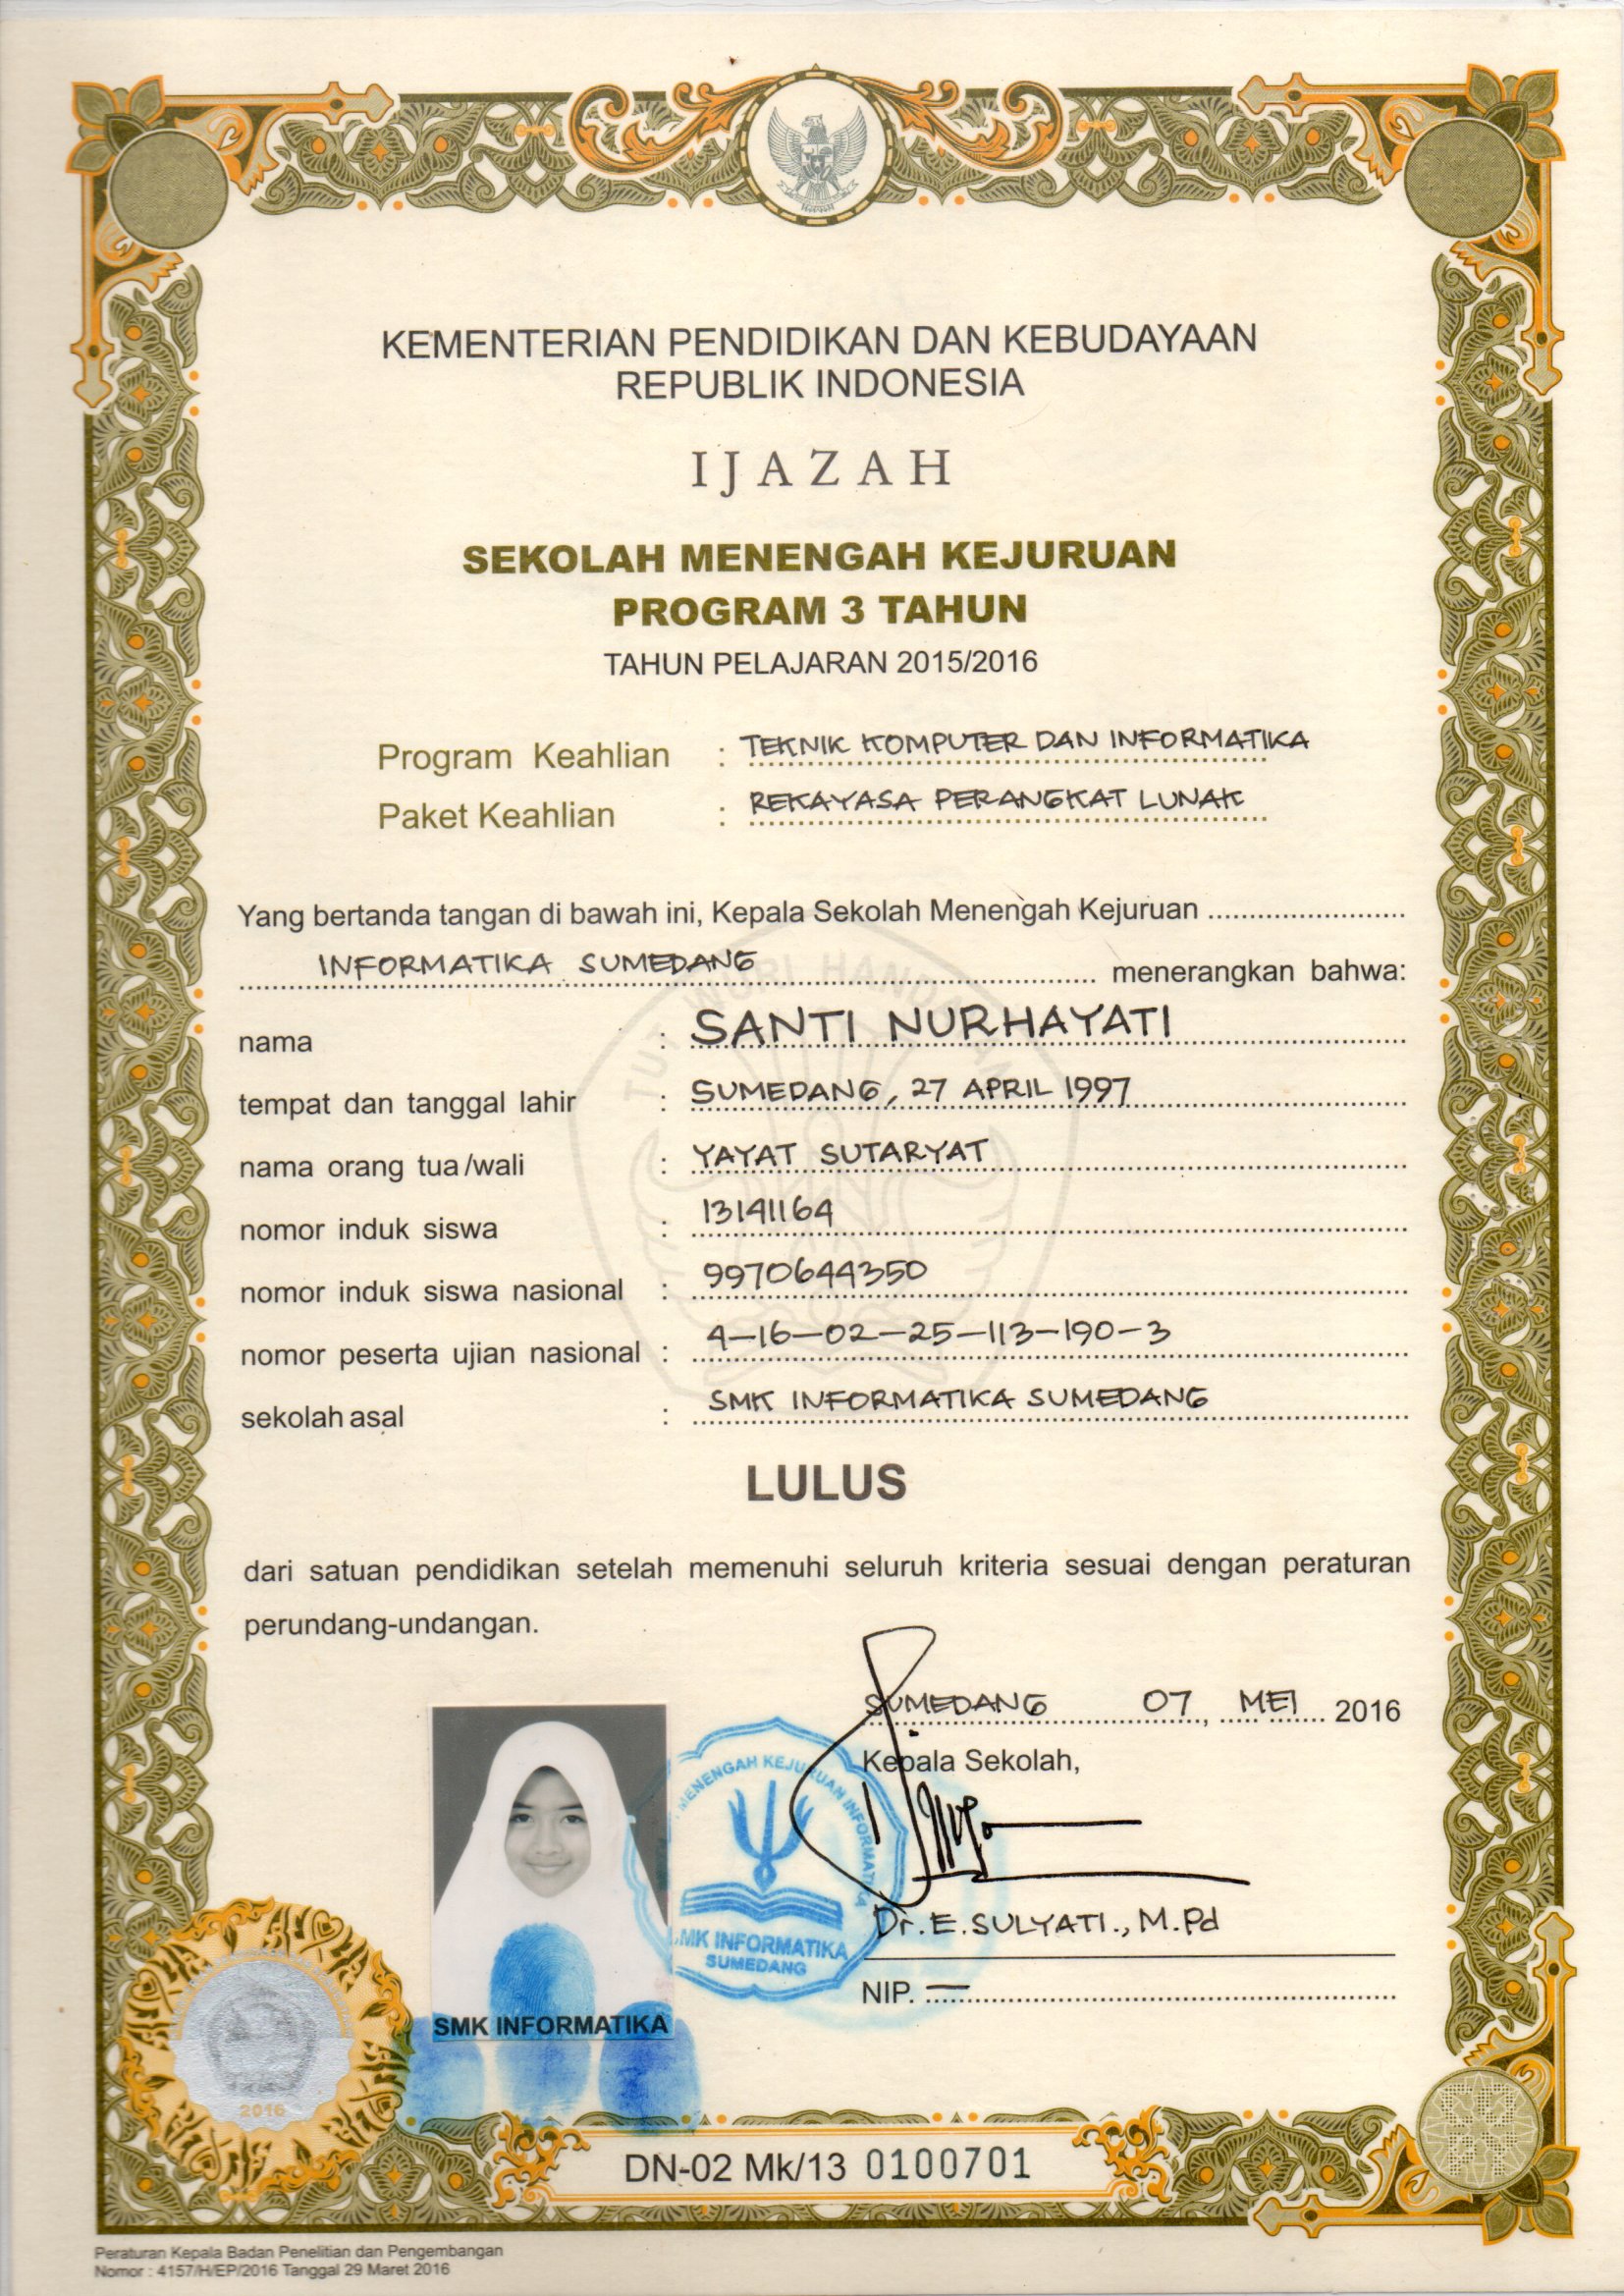 KEMENTERIAN PENDIDIKAN DAN KEBUDAYAAN
REPUBLIK INDONESIA
IJAZAH
SEKOLAH MENENGAH KEJURUAN
PROGRAM 3 TAHUN
TAHUN PELAJARAN 2015/2016
Program Keahlian : TEKNIK KOMPUTER DAN INFORMATIKA
Paket Keahlian : REKAYASA PERANGKAT LUNAK
Yang bertanda tangan di bawah ini, Kepala Sekolah Menengah Kejuruan
INFORMATIKA SUMEDANG menerangkan bahwa:
nama : SANTI NURHAYATI
tempat dan tanggal lahir : SUMEDANG, 27 APRIL 1997
nama orang tua/wali : YAYAT SUTARYAT
nomor induk siswa : 13141164
nomor induk siswa nasional : 9970644350
nomor peserta ujian nasional : 4-16-02-25-113-190-3
sekolah asal : SMK INFORMATIKA SUMEDANG
LULUS
dari satuan pendidikan setelah memenuhi seluruh kriteria sesuai dengan peraturan
perundang-undangan.
SUMEDANG 07, MEI 2016
Kepala Sekolah,
MENENGAH KEJURUAN INFORMATIKA
MK INFORMATIKA
SUMEDANG
Dr. E. SULYATI., M.Pd
NIP. —
SMK INFORMATIKA
2016
DN-02 Mk/13 0100701
Peraturan Kepala Badan Penelitian dan Pengembangan
Nomor : 4157/H/EP/2016 Tanggal 29 Maret 2016